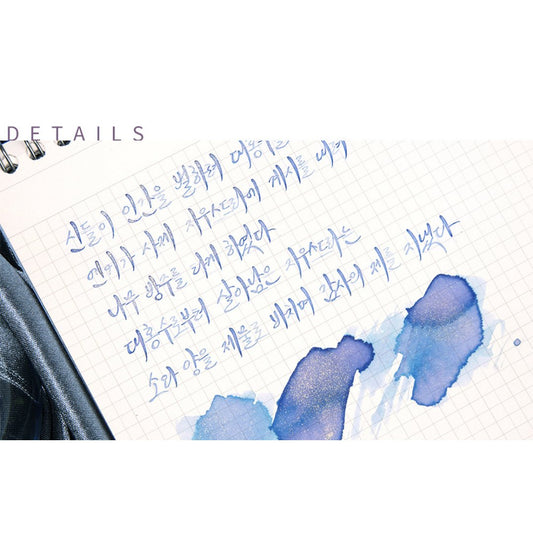 DETAILS
신들이 인간을 벌하려 대홍수를
엔키가 사제 지우스드라에 계시를 내려
나무 방주를 타게 하였다
대홍수로부터 살아남은 지우스드라는
소와 양을 제물로 바치며 감사의 제를 지냈다